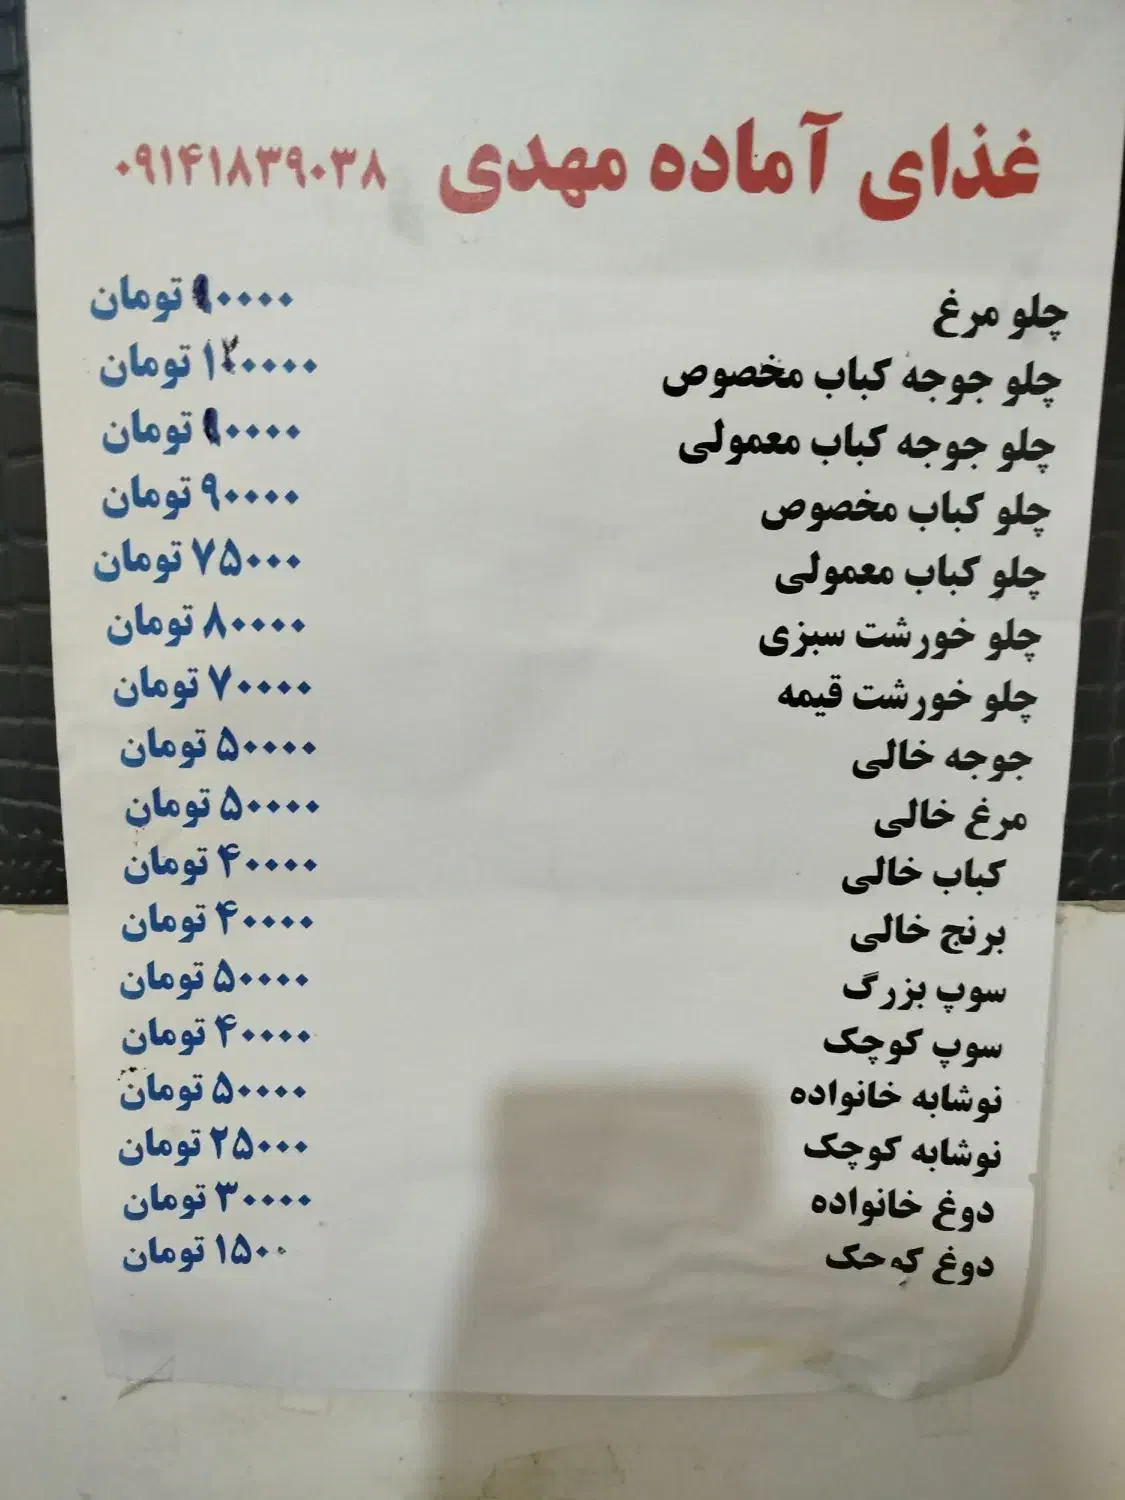 غذای آماده مهدی ۰۹۱۴۱۸۳۹۰۳۸
چلو مرغ ۹۰۰۰۰ تومان
چلو جوجه کباب مخصوص ۱۲۰۰۰۰ تومان
چلو جوجه کباب معمولی ۹۰۰۰۰ تومان
چلو کباب مخصوص ۹۰۰۰۰ تومان
چلو کباب معمولی ۷۵۰۰۰ تومان
چلو خورشت سبزی ۸۰۰۰۰ تومان
چلو خورشت قیمه ۷۰۰۰۰ تومان
جوجه خالی ۵۰۰۰۰ تومان
مرغ خالی ۵۰۰۰۰ تومان
کباب خالی ۴۰۰۰۰ تومان
برنج خالی ۴۰۰۰۰ تومان
سوپ بزرگ ۵۰۰۰۰ تومان
سوپ کوچک ۴۰۰۰۰ تومان
نوشابه خانواده ۵۰۰۰۰ تومان
نوشابه کوچک ۲۵۰۰۰ تومان
دوغ خانواده ۳۰۰۰۰ تومان
دوغ کوچک ۱۵۰۰۰ تومان